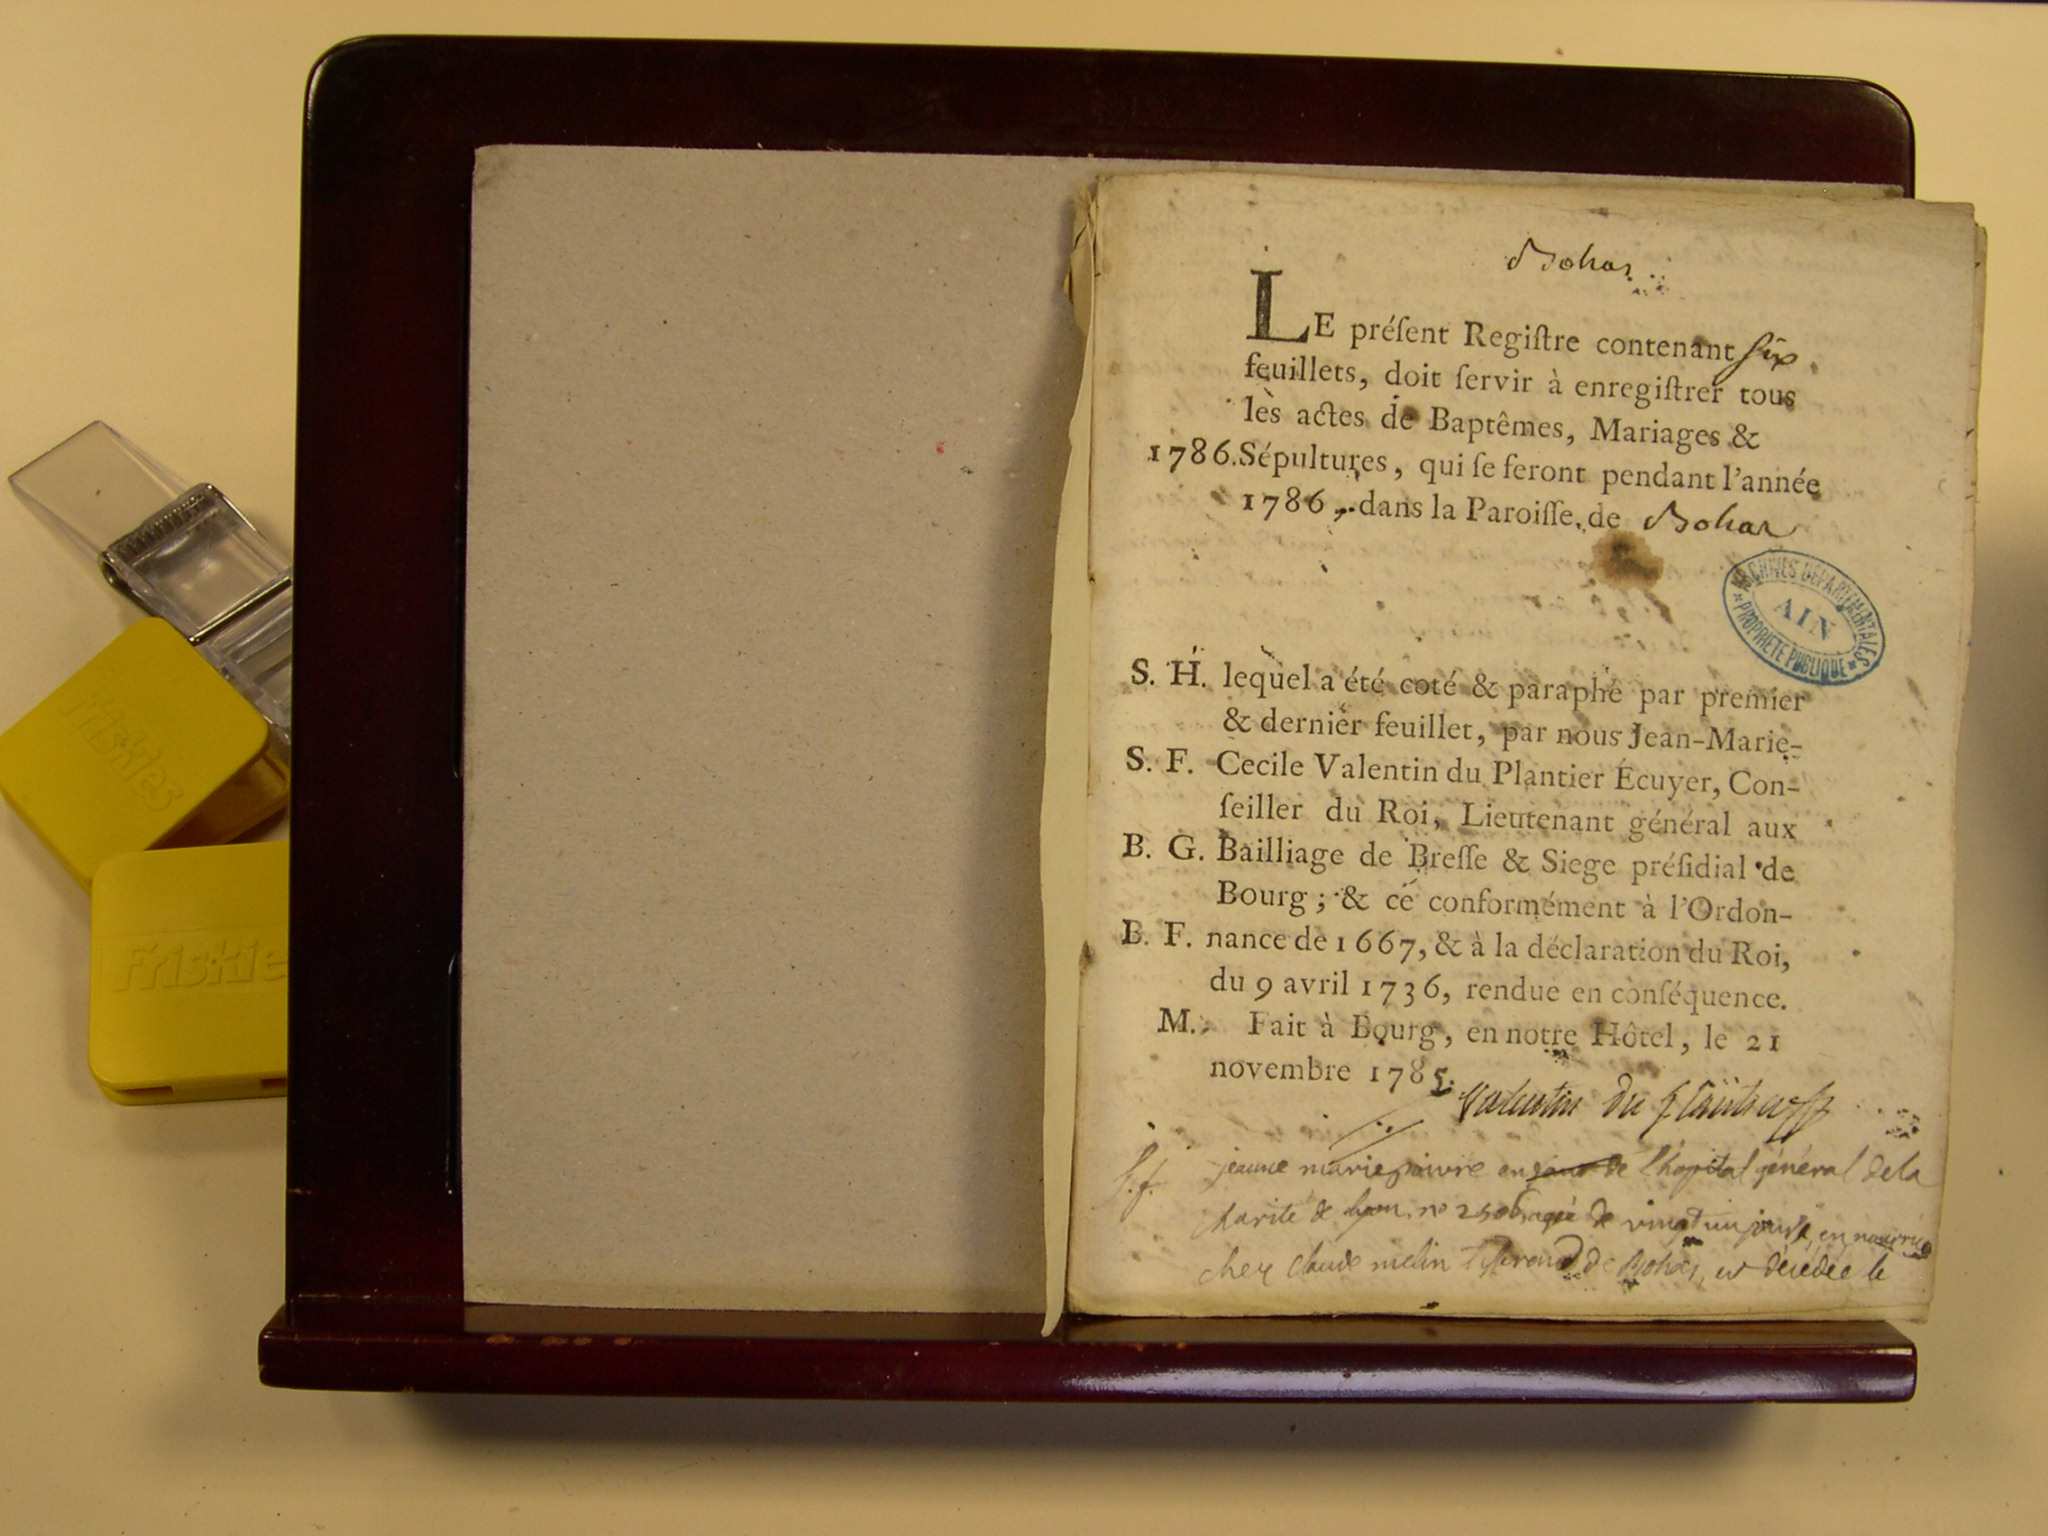 Bohas
LE préſent Regiſtre contenant six
feuillets, doit ſervir à enregiſtrer tous
lès actes de Baptêmes, Mariages &
1786. Sépultures, qui ſe feront pendant l'année
1786, dans la Paroiſſe de Bohas
ARCHIVES DÉPARTEMENTALES
AIN
* PROPRIÉTÉ PUBLIQUE *
S. H. lequel a été coté & paraphé par premier
& dernier feuillet, par nous Jean-Marie-
S. F. Cecile Valentin du Plantier Écuyer, Con-
ſeiller du Roi, Lieutenant général aux
B. G. Bailliage de Breſſe & Siege préſidial de
Bourg; & ce conformément à l'Ordon-
B. F. nance de 1667, & à la déclaration du Roi,
du 9 avril 1736, rendue en conſéquence.
M. Fait à Bourg, en notre Hôtel, le 21
novembre 1785.
Valentin du plantier
S.f. jeanne marie poivre de l'hopital général de la
charité de lyon. no agée de vingt un jours, en nourrice
chez claude melin tisserand de Bohas, est décédée le
Friskies
Friskie